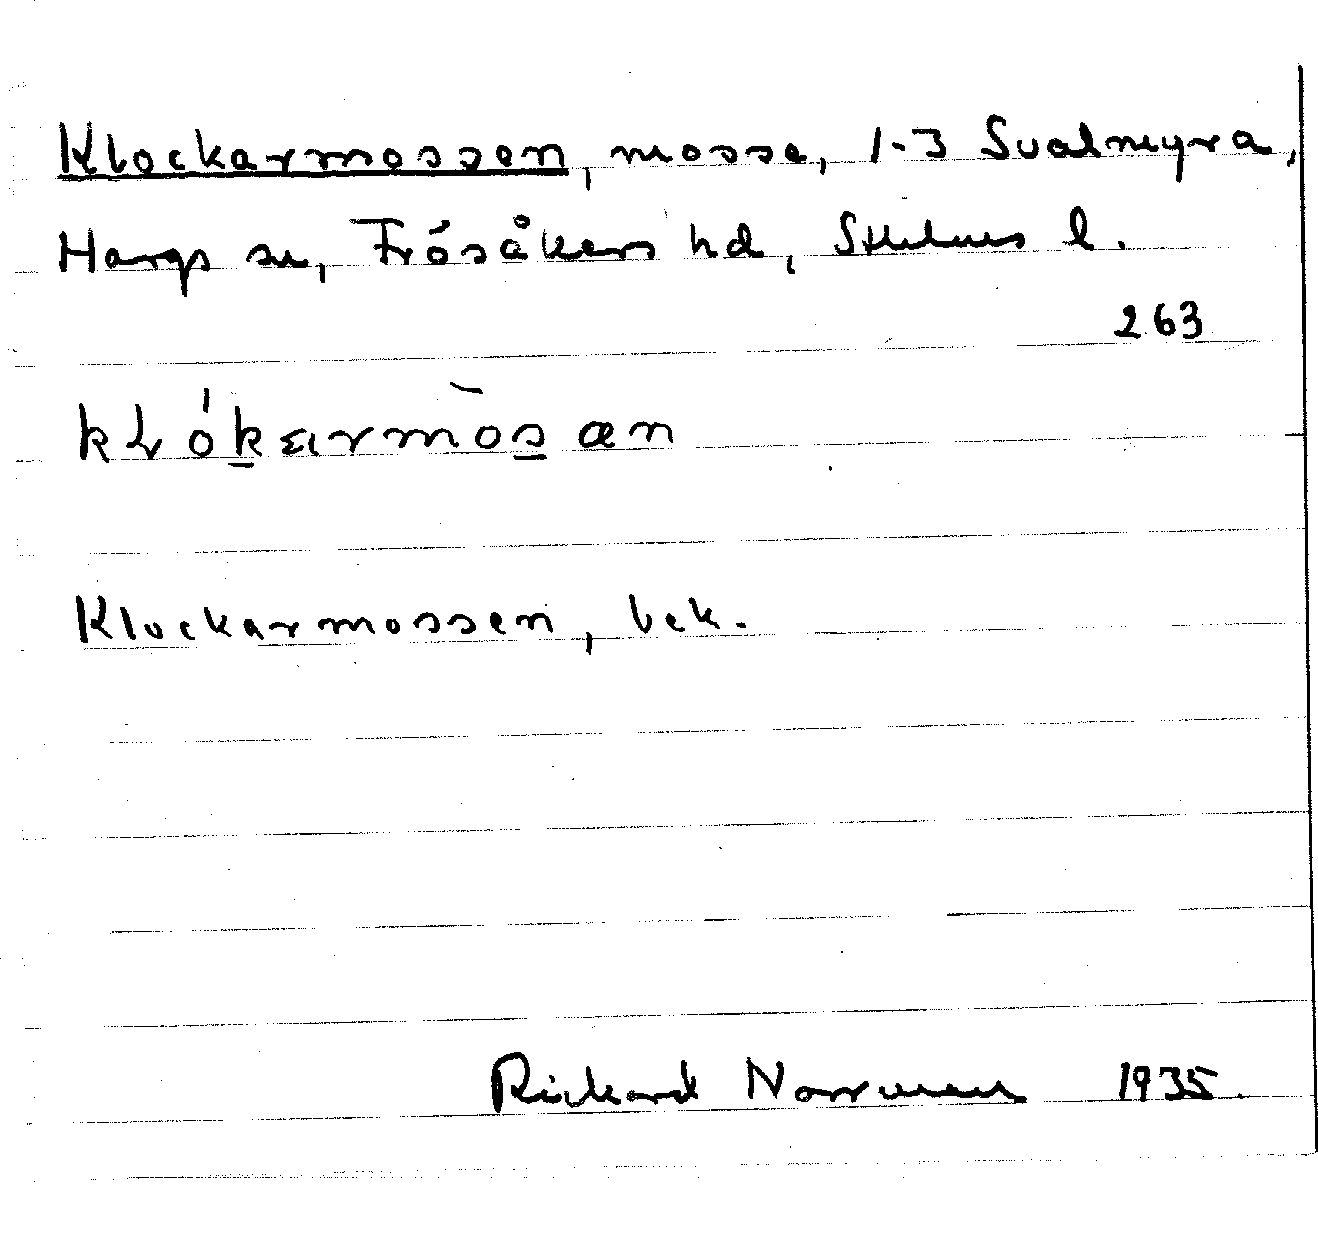 Klockarmossen, mosse, 1-3 Svalmyra,
Hargs sn, Frösåkers hd, Sthlms l.
263
kłókarmòsan
Klockarmossen, bek.
Rickard Norrman 1935.